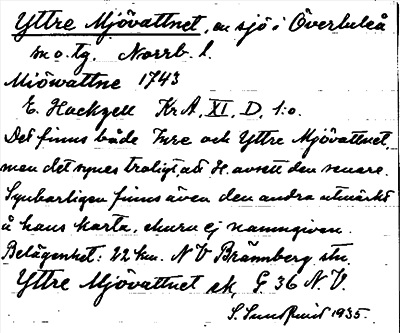 Yttre Mjövattnet, en sjö i Överluleå
sn o. tg. Norrb. l.
Miöwattne 1743
E. Hackzell KrA, XI, D, 1:o.
Det finns både Inre och Yttre Mjövattnet,
men det synes troligt, att H. avsett den senare.
Synbarligen finns även den andra utmärkt
å hans karta, ehuru ej namngiven.
Belägenhet: 22 km. NV Brännberg stn.
Yttre Mjövattnet ek, G. 36 N.V.
S. 1935.